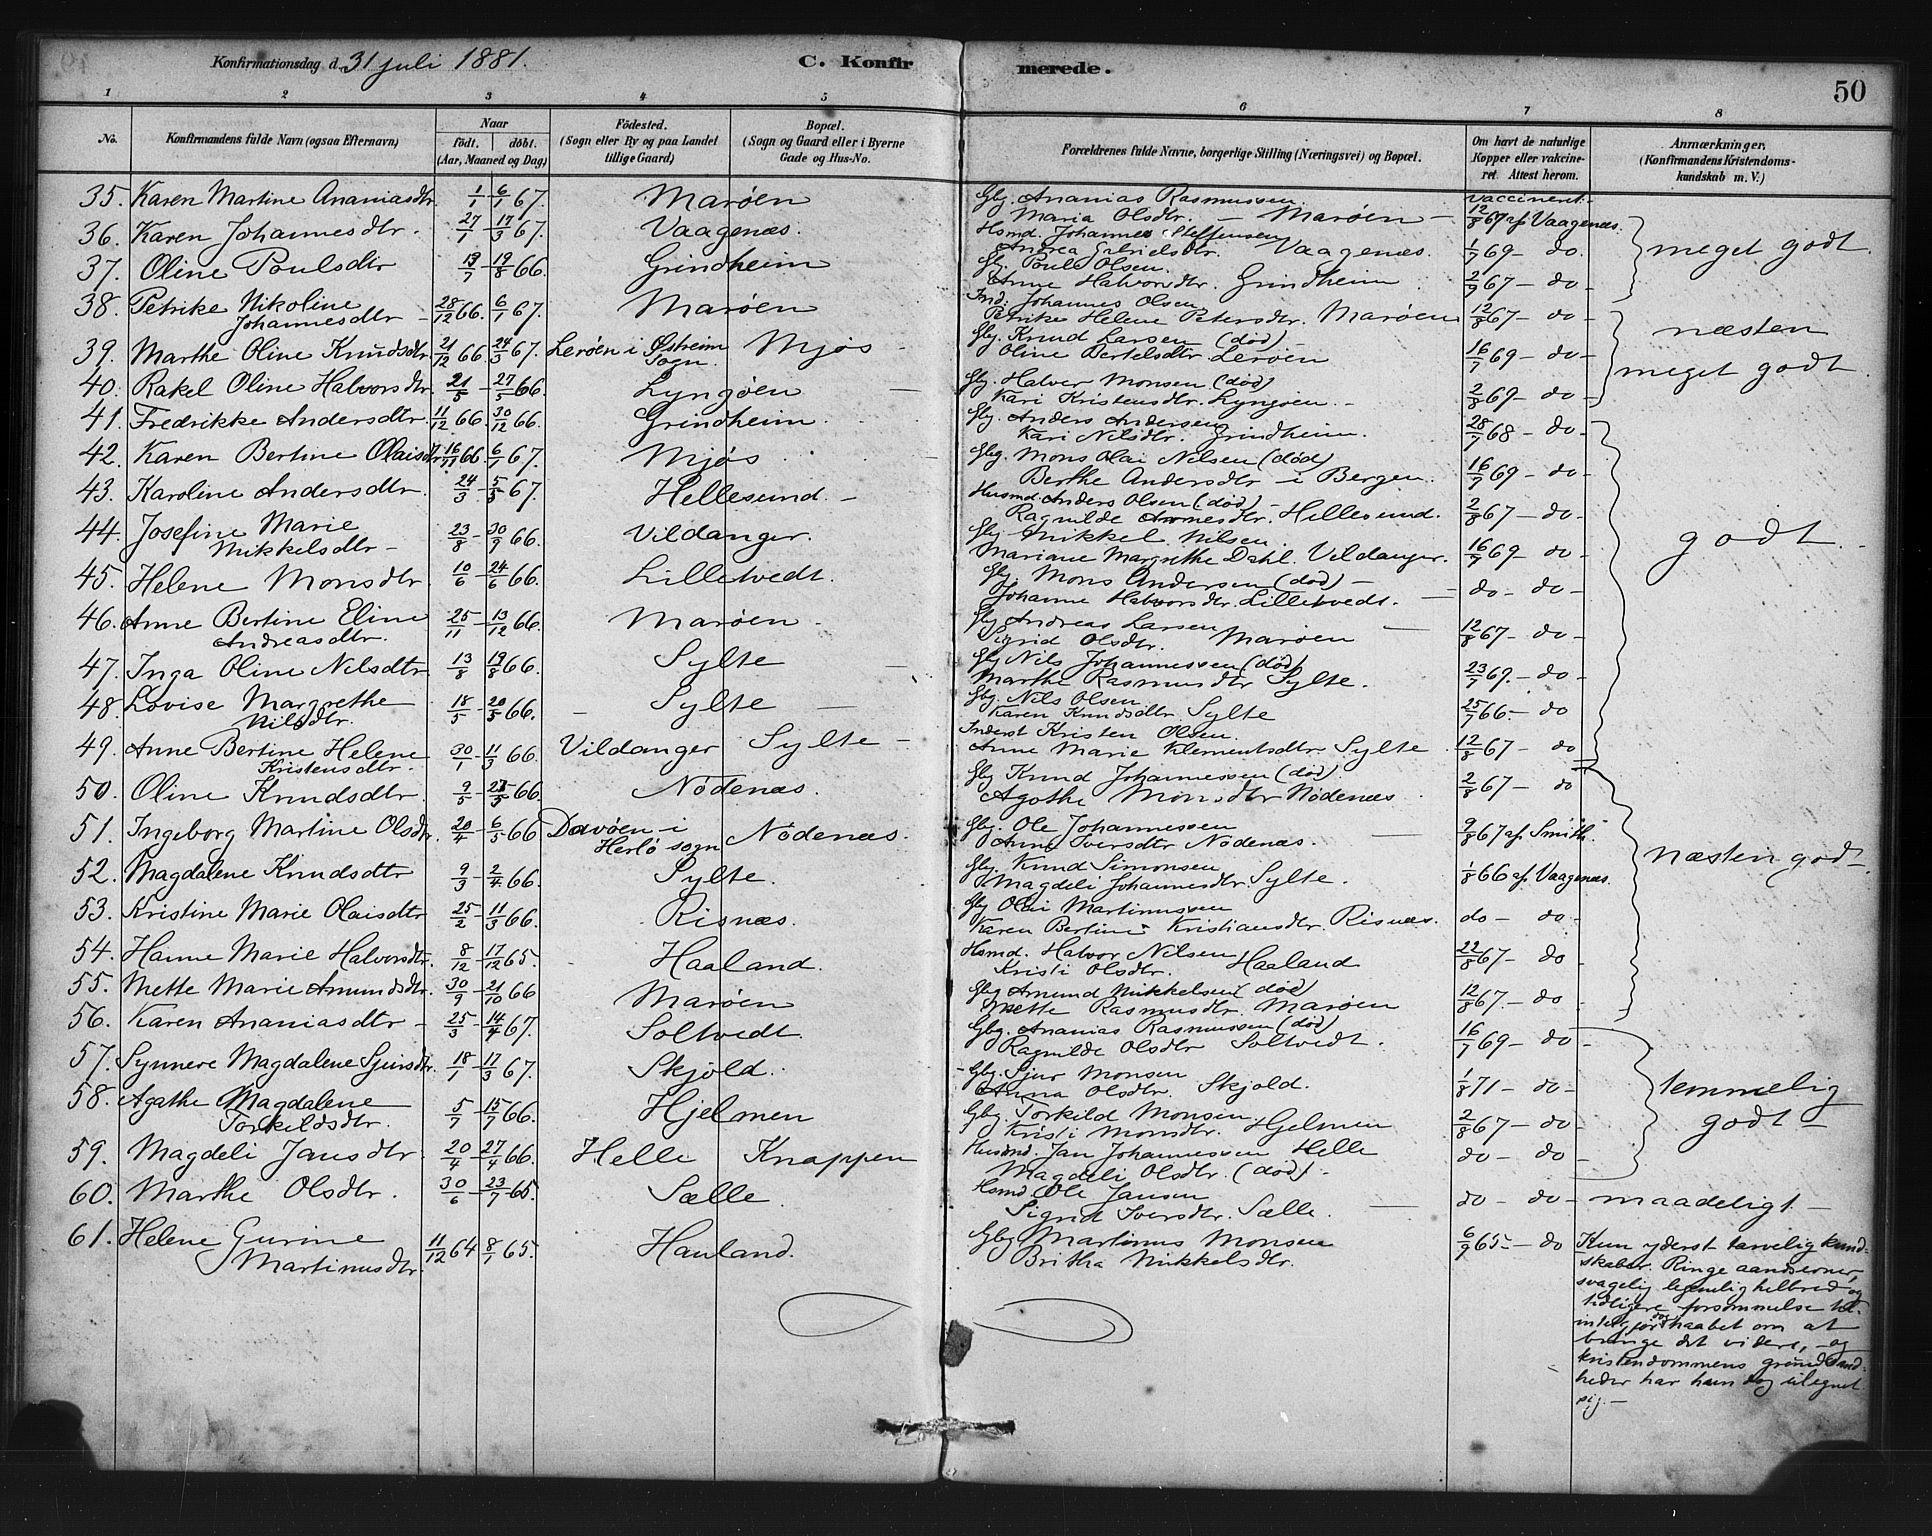 Konfirmationsdag d. 31 juli 1881. C. Konfirmerede. 50
1 2 3 4 5 6 7 8
No. Konfirmandens fulde Navn (ogsaa Efternavn) Naar født. døbt. (Aar, Maaned og Dag) Fødested. (Sogn eller By og paa Landet tillige Gaard) Bopæl. (Sogn og Gaard eller i Byerne Gade og Hus-No. Forældrenes fulde Navne, borgerlige Stilling (Næringsvei) og Bopæl. Om havt de naturlige Kopper eller vakcineret. Attest herom. Anmærkninger. (Konfirmandens Kristendomskundskab m. V.)
35. Karen Martine Ananiasdtr 1/1 - 6/1 67. Marøen Gbg. Ananias Rasmussen vaccineret.
Maria Olsdtr. - Marøen - 12/8 67 af Vaagenæs.
36. Karen Johannesdtr. 27/1 - 17/3 67. Vaagenæs. Hsmd. Johannes Steffensen
Andrea Gabrielsdtr. Vaagenæs. 1/7 69 - do. meget godt.
37. Oline Poulsdtr 13/7 - 19/8 66. Grindheim Gbg. Poul Olsen.
Anne Halvorsdtr. Grindheim 2/9 67 - do -
38. Petrike Nikoline 28/12 66. 6/1 67. Marøen Ind. Johannes Olsen
Johannesdtr - Petrike Helene Petersdtr. Marøen 12/8 67 - do - næsten
39. Marthe Oline Knudsdtr 21/12 66. 24/3 67. Lerøen i Østheim Sogn. Mjøs - Gbg. Knud Larsen (død) -
Oline Bertelsdtr Lerøen 16/7 69 - do - meget godt.
40. Rakel Oline Halvorsdtr. 21/5 - 27/5 66. Lyngøen - Gbg. Halvor Monsen (død)
Kari Kristensdtr. Lyngøen. - 2/8 69 - do -
41. Fredrikke Andersdtr. 11/12 66. 30/12 66. Grindheim. Gbg. Anders Andersen
Kari Nilsdtr. Grindheim. 28/7 68 - do -
42. Karen Bertine Olaisdtr 16/11 66. 6/1 67. Mjøs Gbg. Mons Olai Nilsen (død)
Berthe Andersdtr - i Bergen. 16/7 69 - do
43. Karoline Andersdtr. 24/3 - 5/5 67. Hellesund. - Husmd. Anders Olsen (død) -
Ragnilde Arnesdtr. Hellesund. 2/8 67 - do -
44. Josefine Marie 23/8 - 30/9 66. Vildanger. Gbg. Mikkel Nilsen
Mikkelsdtr - Mariane Margrethe Dahl. Vildanger. 16/7 69 - do - godt.
45. Helene Monsdtr 10/6 - 24/6 66. Lilletvedt. Gbg. Mons Andersen (død) -
Johanne Halvorsdtr. Lilletvedt. - do - do -
46. Anne Bertine Eline 25/11 - 13/12 66. Marøen - Gbg Andreas Larsen -
Andreasdtr. Sigrid Olsdtr. Marøen 12/8 67 - do -
47. Inga Oline Nilsdtr 13/8 - 19/8 66. Sylte - Gbg Nils Johannessen (død)
Marthe Rasmusdtr Sylte. 23/7 69. - do -
48. Lovise Margrethe 18/5 - 20/5 66. - Sylte - Gbg. Nils Olsen
Nilsdtr. Karen Knudsdtr Sylte 25/7 66. - do
49. Anne Bertine Helene 30/1 - 11/3 66. Vildanger Sylte - Inderst Kristen Olsen.
Kristensdtr. Anne Marie Klementsdtr Sylte 12/8 67 - do
50. Oline Knudsdtr. 9/5 - 66. Nödenæs. Gbg Knud Johannessen (død).
Agathe Monsdtr Nödenæs 2/8 67 - do
51. Ingeborg Martine Olsdtr. 20/4 - 6/5 66 Davøen - i Herlø sogn Nödenæs. Gbg. Ole Johannessen -
Anne Iversdtr Nödenæs. 9/8 67 af Smith.
52. Magdalene Knudsdtr 9/3 - 2/4 66. Sylte. Gbg Knud Simonsen
Magdeli Johannesdtr. Sylte. 1/8 66 af Vaagenæs. næsten godt
53. Kristine Marie Olaisdtr 25/2 - 11/3 66. Risnæs. Gbg Olai Martinussen
Karen Bertine Kristiansdtr. Risnæs. do - do -
54. Hanne Marie Halvorsdtr. 8/12 - 17/12 65. Haaland. Hsmd. Halvor Nilsen
Kristi Olsdtr. Haaland 22/8 67 - do
55. Mette Marie Amundsdtr. 30/9 - 21/10 66 Marøen Gbg Amund Mikkelsen (død)
Mette Rasmusdtr. Marøen 12/8 67. - do -
56. Karen Ananiasdtr - 25/3 - 14/4 67. Soltvedt. Gbg. Ananias Rasmussen (død)
Ragnilde Olsdtr Soltvedt. 16/7 69 - do -
57. Synnere Magdalene Sjursdtr. 18/1 - 17/3 67. Skjold. Gbg. Sjur Monsen
Anna Olsdtr. Skjold. 1/8 71 - do - temmelig
58. Agathe Magdalene 5/7 - 15/7 66. Hjelmen Gbg Torkild Monsen.
Torkildsdtr. Kristi Monsdtr. Hjelmen 2/8 67 - do - godt -
59. Magdeli Jansdtr 20/4 - 27/4 66. Helle Knappen Husmd. Jan Johannessen Helle
Magdeli Olsdtr. (død) - do - do -
60. Marthe Olsdtr. 30/6 - 23/7 65. Sælle. Hsmd Ole Jansen -
Sigrid Iversdtr. Sælle. do - do - maadeligt. -
61. Helene Gurine 11/12 64 8/1 65. Hauland. Gbg Martinus Monsen 6/9 65. - do Kun yderst tarvelig kund-
Martinusdtr. Britha Mikkelsdtr. skaber. Ringe aandsevner,
svagelig legemlig helbred og
tidligere forsømmelse til-
intetgjør haabet om at
bringe det videre, - og
kristendommens grundsand-
heder har hun dog tilegnet
sig. -